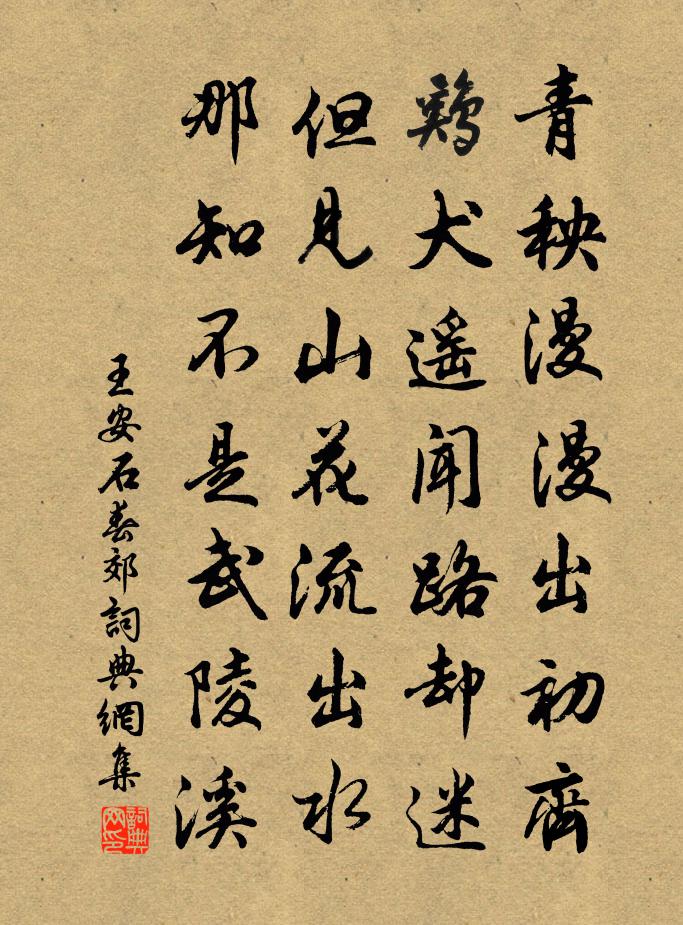 青秧漫漫出初齊
鷄犬遥聞路却迷
但見山花流出水
那知不是武陵溪
王安石春郊詞典網集
詞典网印